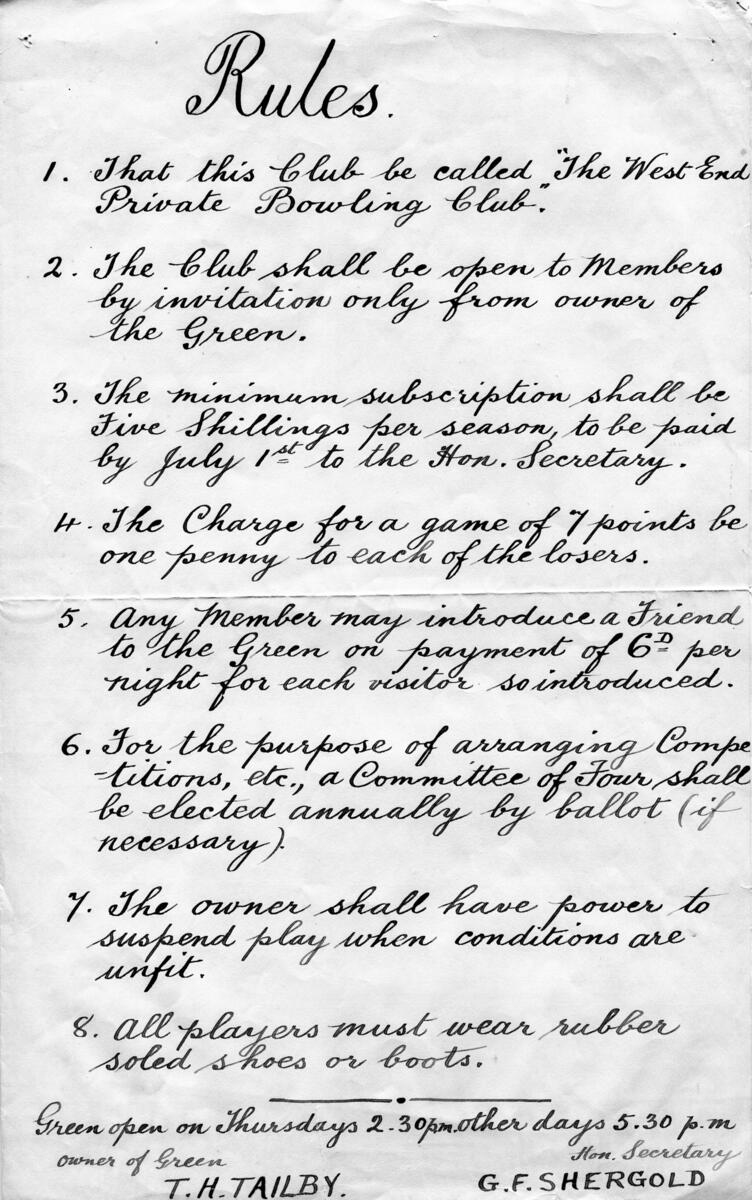 Rules.
1. That this Club be called "The West End
Private Bowling Club".
2. The Club shall be open to Members
by invitation only from owner of
the Green.
3. The minimum subscription shall be
Five Shillings per season, to be paid
by July 1st to the Hon. Secretary.
4. The Charge for a game of 7 points be
one penny to each of the losers.
5. Any Member may introduce a Friend
to the Green on payment of 6D per
night for each visitor so introduced.
6. For the purpose of arranging Compe
-titions, etc., a Committee of Four shall
be elected annually by ballot (if
necessary).
7. The owner shall have power to
suspend play when conditions are
unfit.
8. All players must wear rubber
soled shoes or boots.
Green open on Thursdays 2.30pm. other days 5.30 p.m
Owner of Green Hon. Secretary
T.H. TAILBY. G.F. SHERGOLD